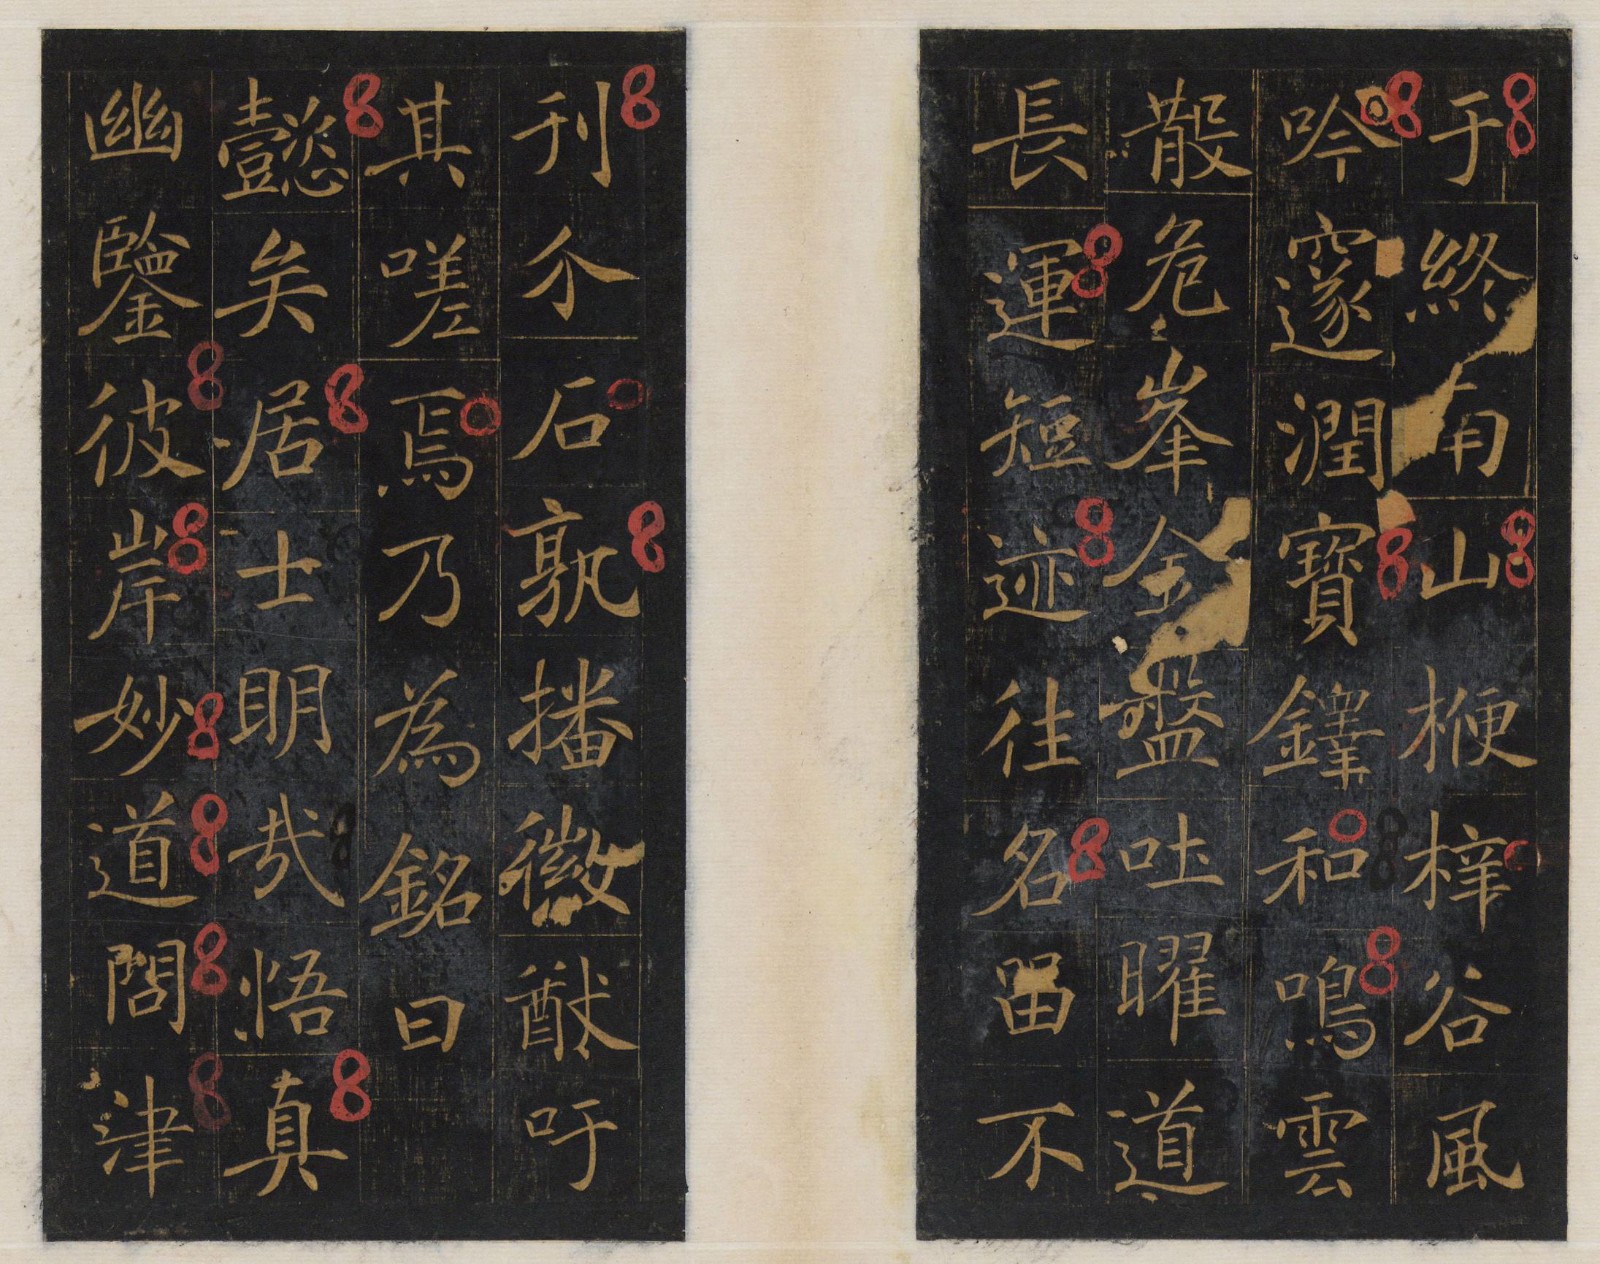 于終南山楩梓谷風
吟邃潤寶鐸和鳴雲
散危峯金盤吐曜道
長運短迹往名留不
刊介石孰播徽猷吁
其嗟焉乃為銘曰
懿矣居士明哉悟真
幽鑒彼岸妙道問津